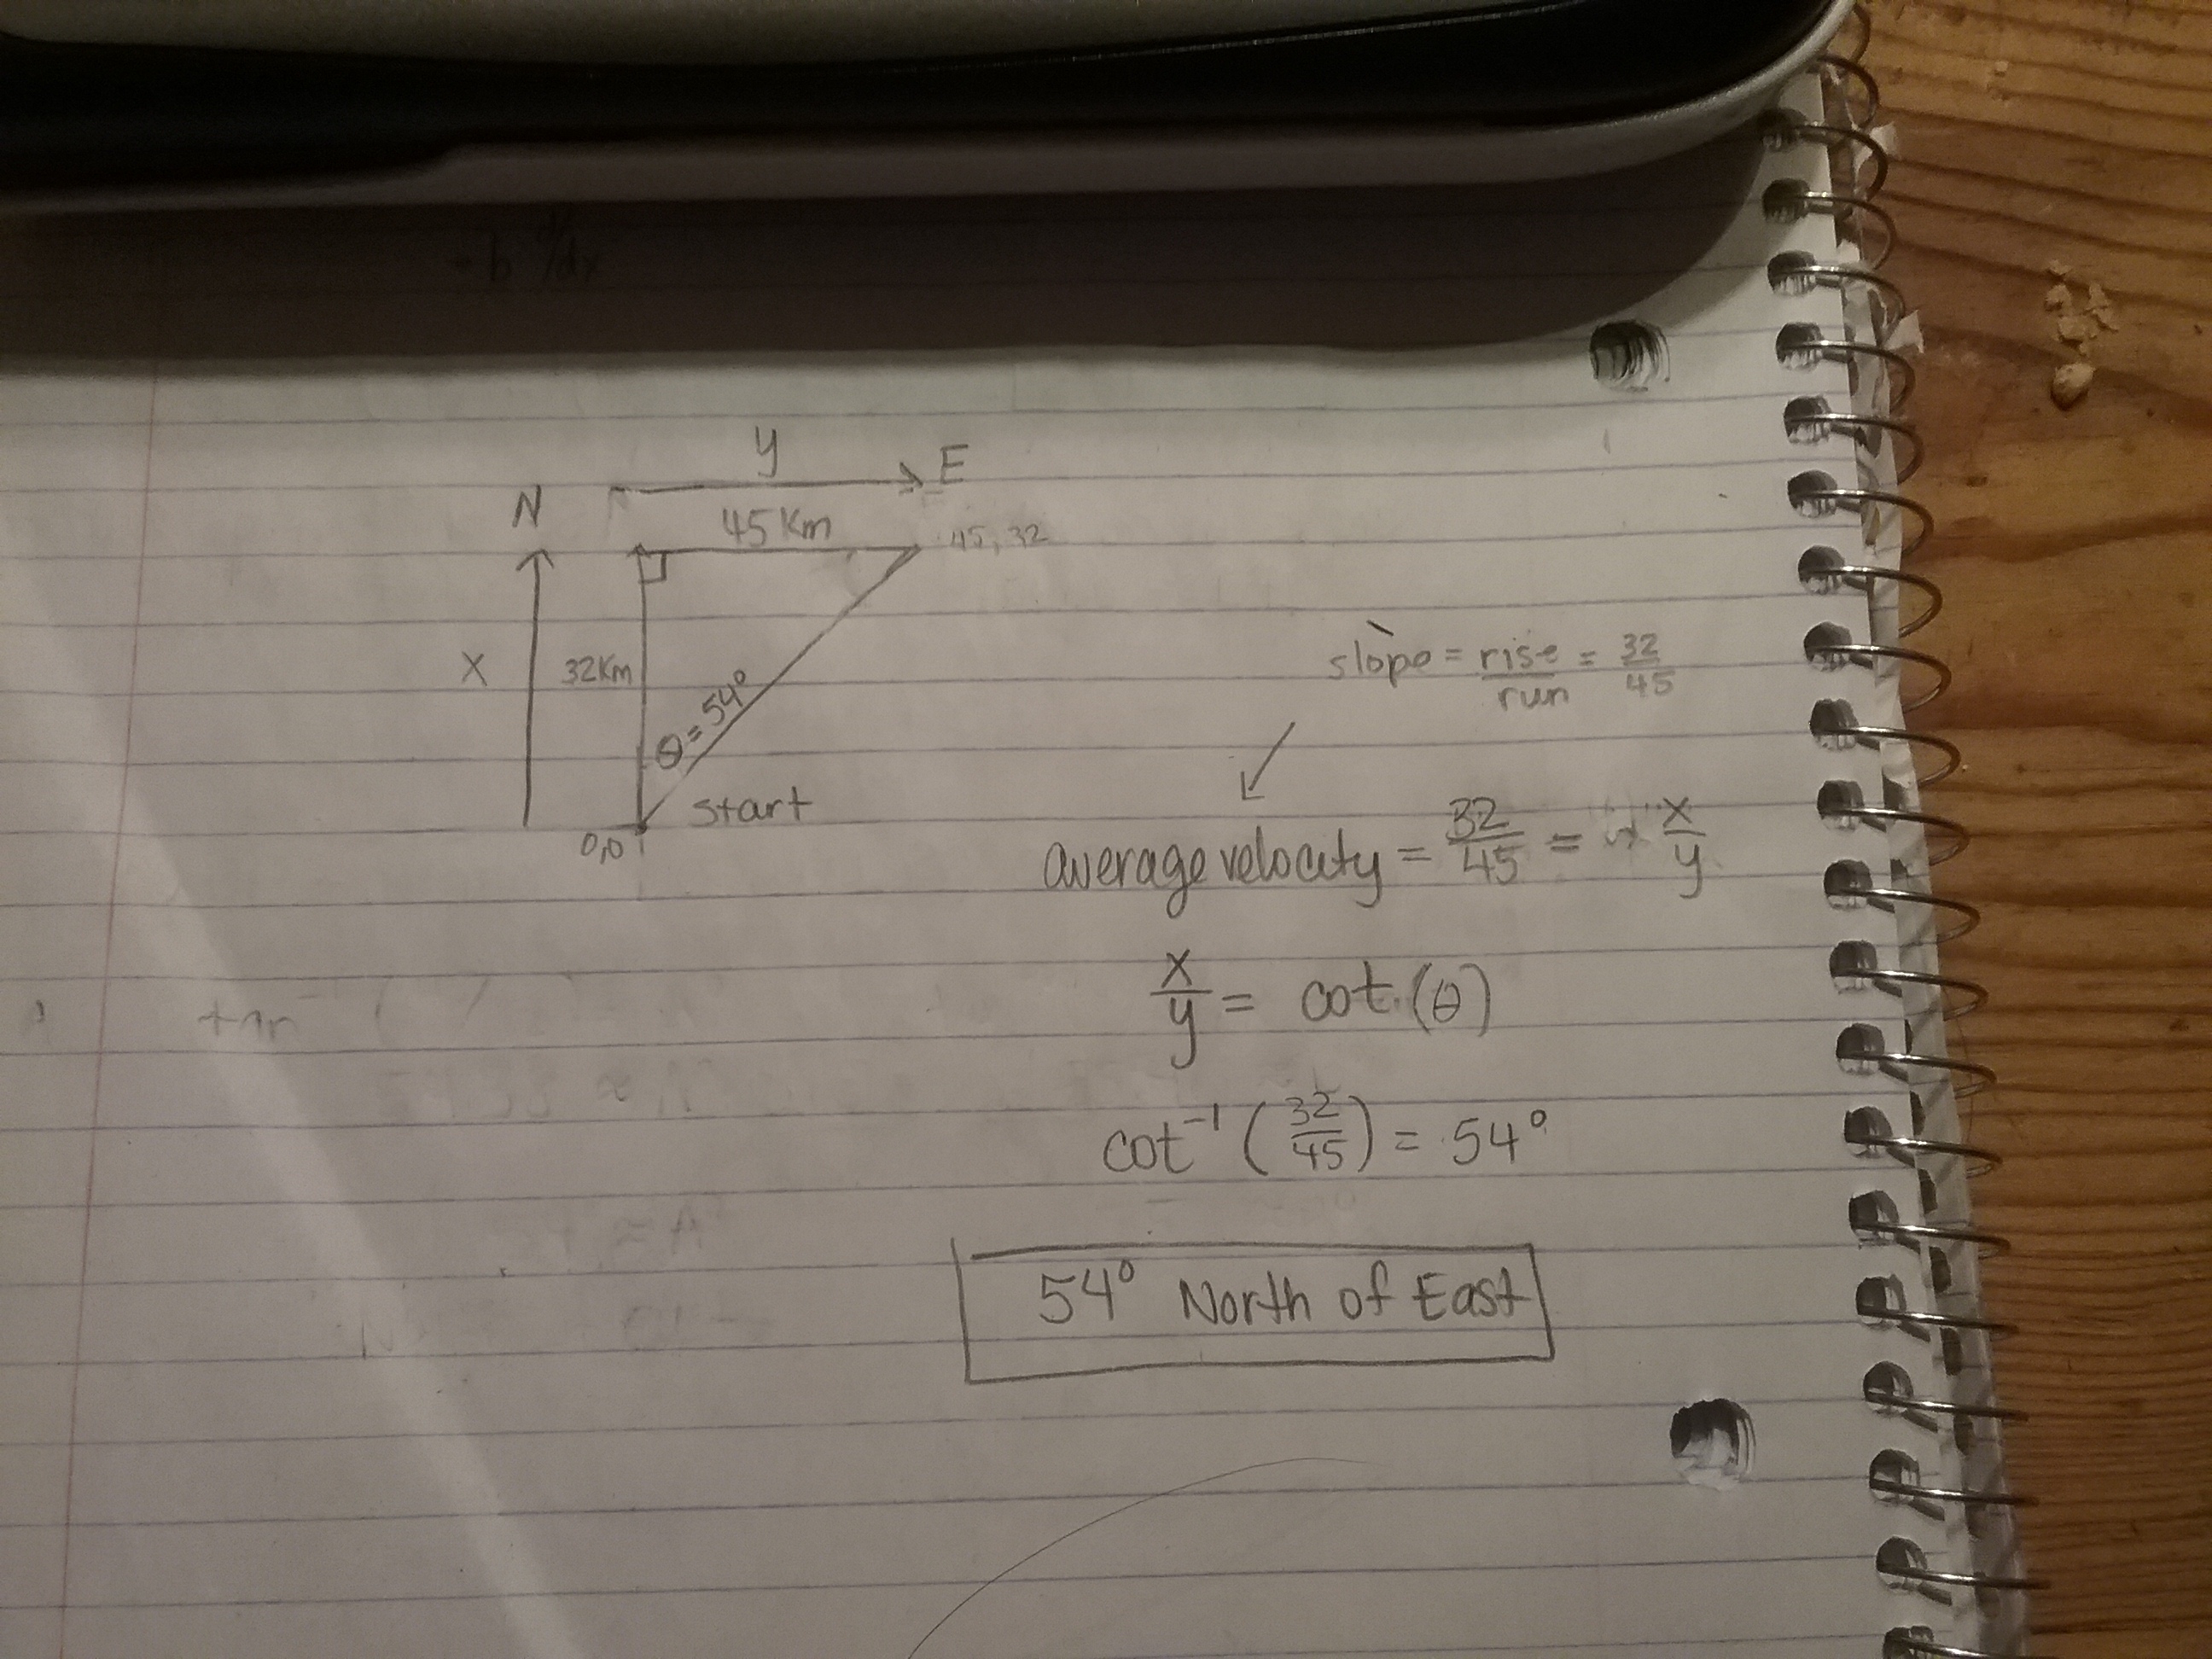 - b d/dx
y
N E
45 Km
45, 32
X 32Km
θ = 54°
start
0,0
slope = rise/run = 32/45
average velocity = 32/45 = x/y
x/y = cot (θ)
cot⁻¹ (32/45) = 54°
54° North of East